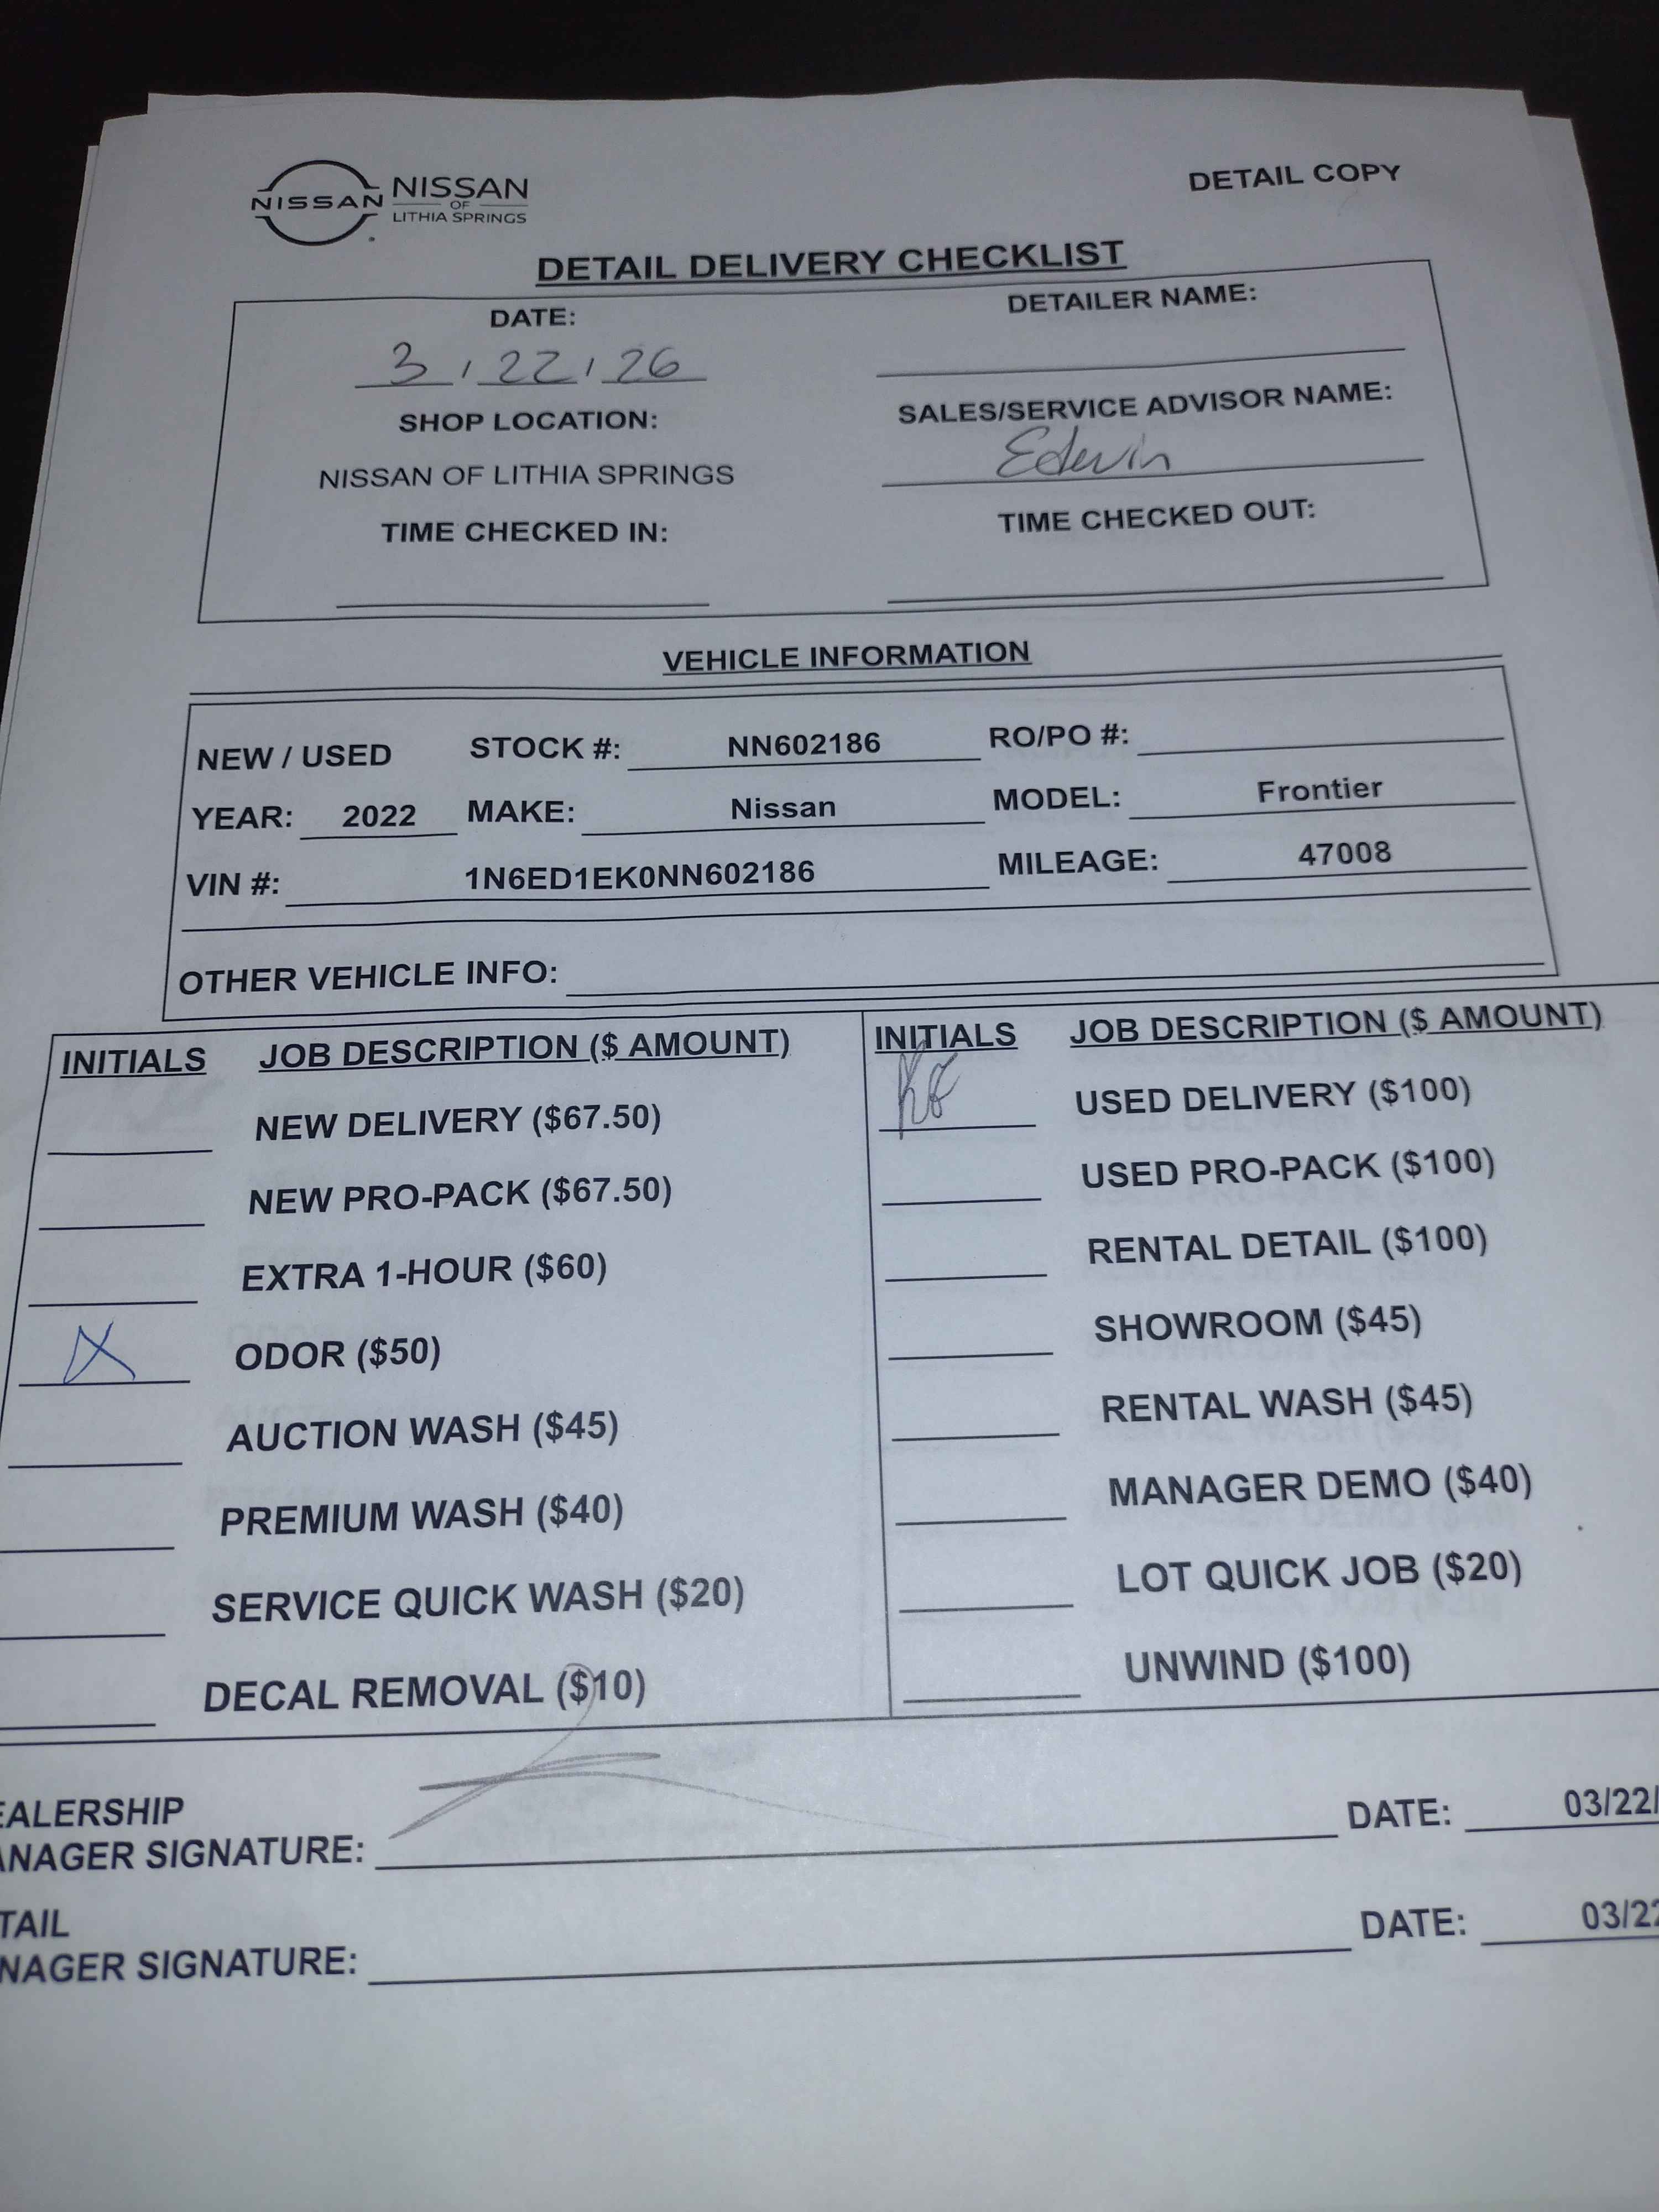 DETAIL COPY
NISSAN NISSAN
OF
LITHIA SPRINGS
DETAIL DELIVERY CHECKLIST
DATE: DETAILER NAME:
3 / 22 / 26
SHOP LOCATION: SALES/SERVICE ADVISOR NAME:
NISSAN OF LITHIA SPRINGS Edwin
TIME CHECKED IN: TIME CHECKED OUT:
VEHICLE INFORMATION
NEW / USED STOCK #: NN602186 RO/PO #:
YEAR: 2022 MAKE: Nissan MODEL: Frontier
VIN #: 1N6ED1EK0NN602186 MILEAGE: 47008
OTHER VEHICLE INFO:
INITIALS JOB DESCRIPTION ($ AMOUNT) INITIALS JOB DESCRIPTION ($ AMOUNT)
NEW DELIVERY ($67.50) USED DELIVERY ($100)
NEW PRO-PACK ($67.50) USED PRO-PACK ($100)
EXTRA 1-HOUR ($60) RENTAL DETAIL ($100)
X ODOR ($50) SHOWROOM ($45)
AUCTION WASH ($45) RENTAL WASH ($45)
PREMIUM WASH ($40) MANAGER DEMO ($40)
SERVICE QUICK WASH ($20) LOT QUICK JOB ($20)
DECAL REMOVAL ($10) UNWIND ($100)
EALERSHIP
ANAGER SIGNATURE: DATE: 03/22/
TAIL
NAGER SIGNATURE: DATE: 03/22